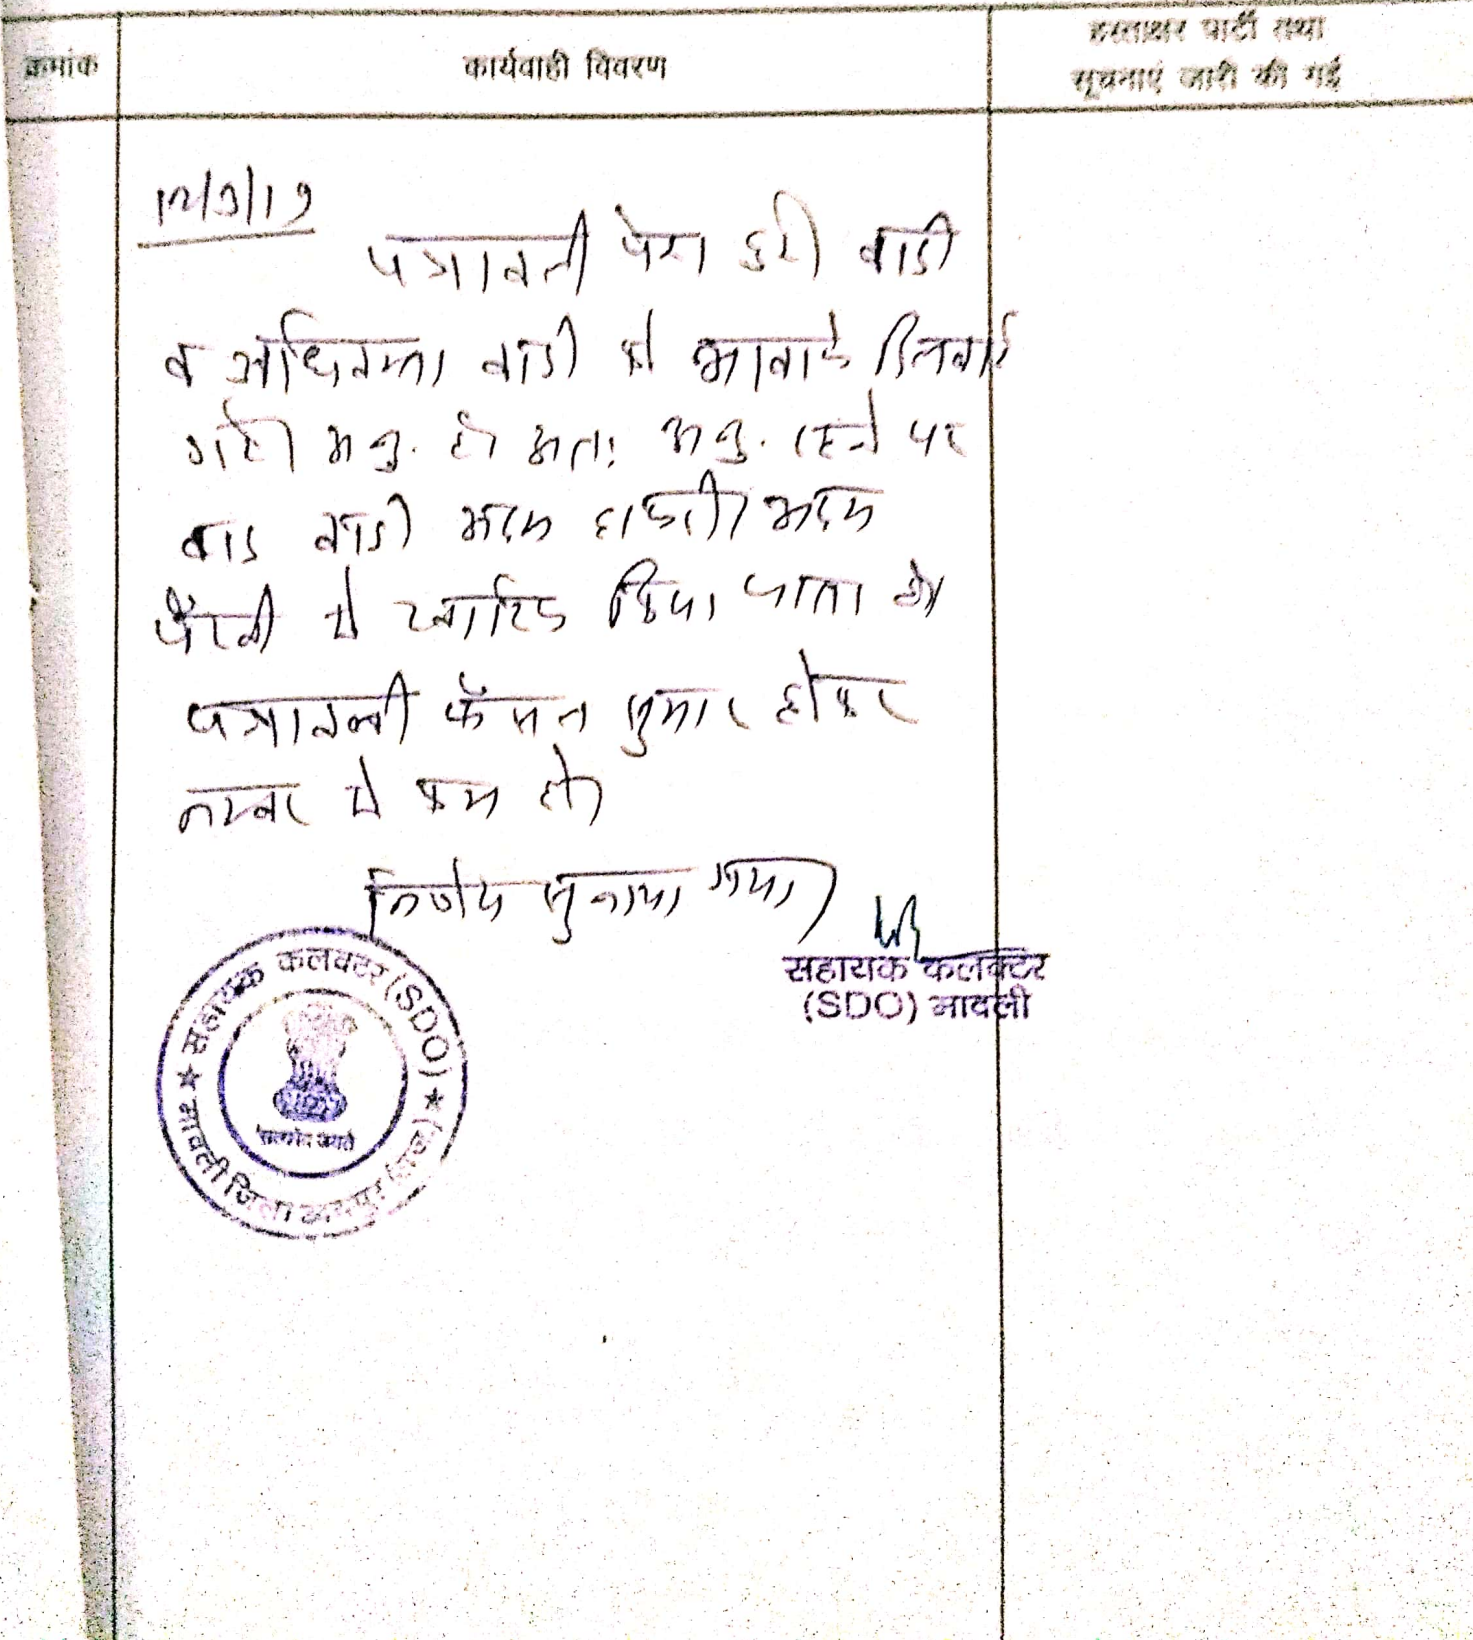 क्रमांक
कार्यवाही विवरण
हस्ताक्षर पार्टी तथा
सूचनाएं जारी की गई
12/3/19
पत्रावली पेश हुई। वादी
व अधिवक्ता वादी को आवाजे दिलवाई
गई। अनु. है। अतः अनु. रहने पर
वाद वादी अदम हाजरी अदम
पैरवी में खारिज किया जाता है।
पत्रावली फैसल शुमार होकर
नम्बर से कम हो।
निर्णय सुनाया गया।
सहायक कलक्टर
(SDO) मावली
सहायक कलक्टर (SDO)
मावली जिला उदयपुर (राज.)
सत्यमेव जयते